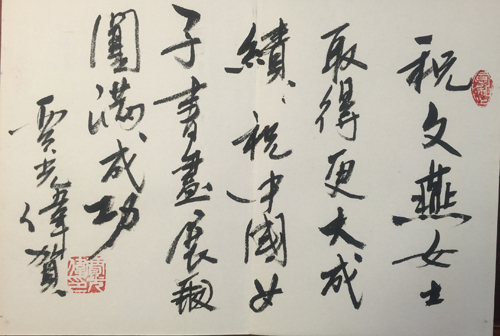 祝文燕女士
取得更大成
績、祝中國女
子書畫展覌
圓满成功
賈光偉賀